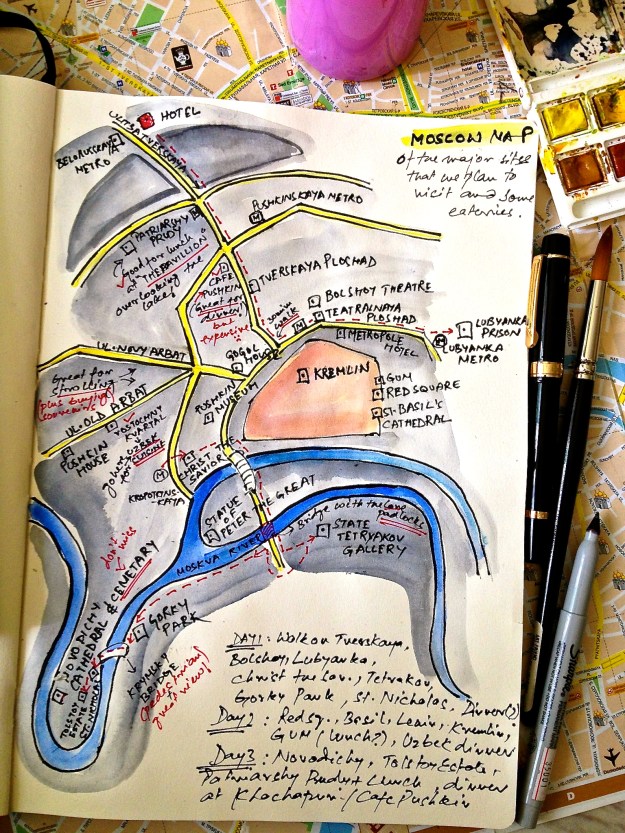 MOSCOW MAP
of the major sites
that we plan to
visit and some
eateries.
HOTEL
ULITSA TVERSKAYA
BELORUSSKAYA
METRO
PUSHKINSKAYA METRO
M
PATRIARCHY
PRUDY
Good for lunch
at "THE PAVILLION"
overlooking the
lake!
CAFE
PUSHKIN
(great for
dinner)
but
expensive!
TVERSKAYA PLOSHAD
scenic
walk
BOLSHOY THEATRE
TEATRALNAYA
PLOSHAD
M
METROPOLE
HOTEL
LUBYANKA
PRISON
M
LUBYANKA
METRO
UL. NOVY ARBAT
GOGOL
HOUSE
KREMLIN
GUM
RED SQUARE
ST. BASIL'S
CATHEDRAL
Great for
strolling
(plus buying
souvenirs)
UL. OLD ARBAT
PUSHKIN
HOUSE
VOSTOCHNY
KVARTAL
for UZBEK
CUISINE
PUSHKIN
MUSEUM
CHRIST THE
SAVIOR
M
KROPOTKINS-
KAYA
STATUE
OF
PETER THE GREAT
Bridge with the love
padlocks
STATE
TETRYAKOV
GALLERY
MOSKVA RIVER
don't
miss
NOVODICHY
CATHEDRAL & CEMETARY
TOLSTOY
ESTATE
ST. NICHOLAS
GORKY
PARK
KRYMSKY
BRIDGE
(pedestrian)
great view!
DAY1: Walk on Tverskaya,
Bolshoy, Lubyanka,
Christ the Sav., Tetrakov,
Gorky Park, St. Nicholas, Dinner(?)
Day2: Redsq., Basil, Lenin, Kremlin,
GUM (lunch?), Uzbek dinner
Day3: Novodichy, Tolstoy Estate,
Patriarshy Prudy + Lunch, dinner
at Khachapuri/Cafe Pushkin